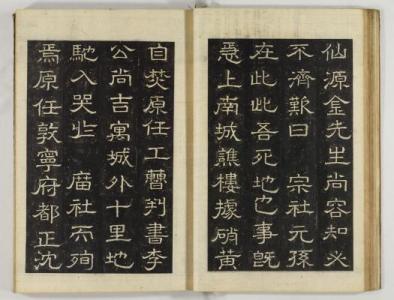 仙源金先生尚容知必
不濟歎曰 宗社元孫
在此此吾死地也事旣
急上南城譙樓據硝黃
自焚原任工曹判書李
公尚吉寓城外十里地
馳入哭 庿社而殉
焉原任敦寧府都正沈